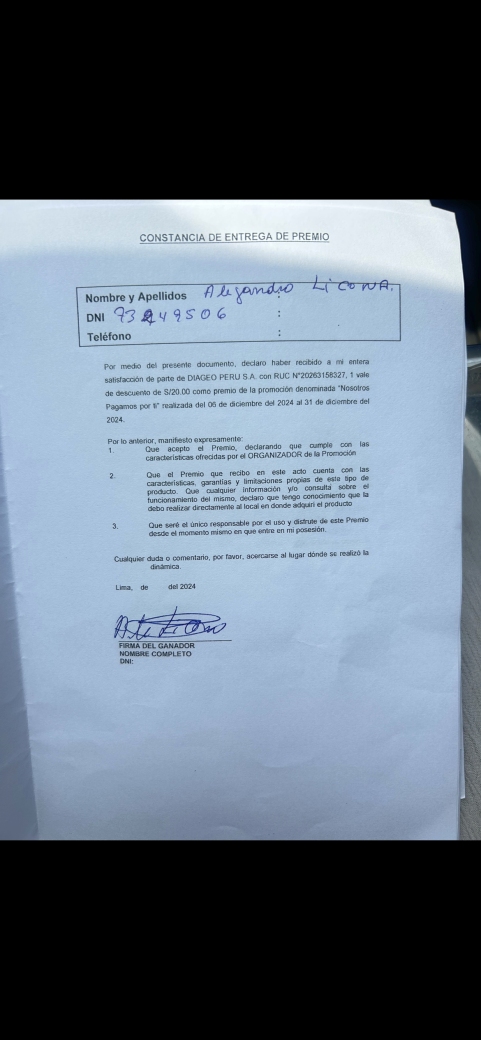 CONSTANCIA DE ENTREGA DE PREMIO
Nombre y Apellidos Alejandro Licona.
DNI 73249506 :
Teléfono :
Por medio del presente documento, declaro haber recibido a mi entera
satisfacción de parte de DIAGEO PERU S.A. con RUC N°20263158327, 1 vale
de descuento de S/20.00 como premio de la promoción denominada "Nosotros
Pagamos por ti" realizada del 06 de diciembre del 2024 al 31 de diciembre del
2024.
Por lo anterior, manifiesto expresamente:
1. Que acepto el Premio, declarando que cumple con las
características ofrecidas por el ORGANIZADOR de la Promoción
2. Que el Premio que recibo en este acto cuenta con las
características, garantías y limitaciones propias de este tipo de
producto. Que cualquier información y/o consulta sobre el
funcionamiento del mismo, declaro que tengo conocimiento que la
debo realizar directamente al local en donde adquirí el producto
3. Que seré el único responsable por el uso y disfrute de este Premio
desde el momento mismo en que entre en mi posesión.
Cualquier duda o comentario, por favor, acercarse al lugar dónde se realizó la
dinámica.
Lima, de del 2024
FIRMA DEL GANADOR
NOMBRE COMPLETO
DNI: